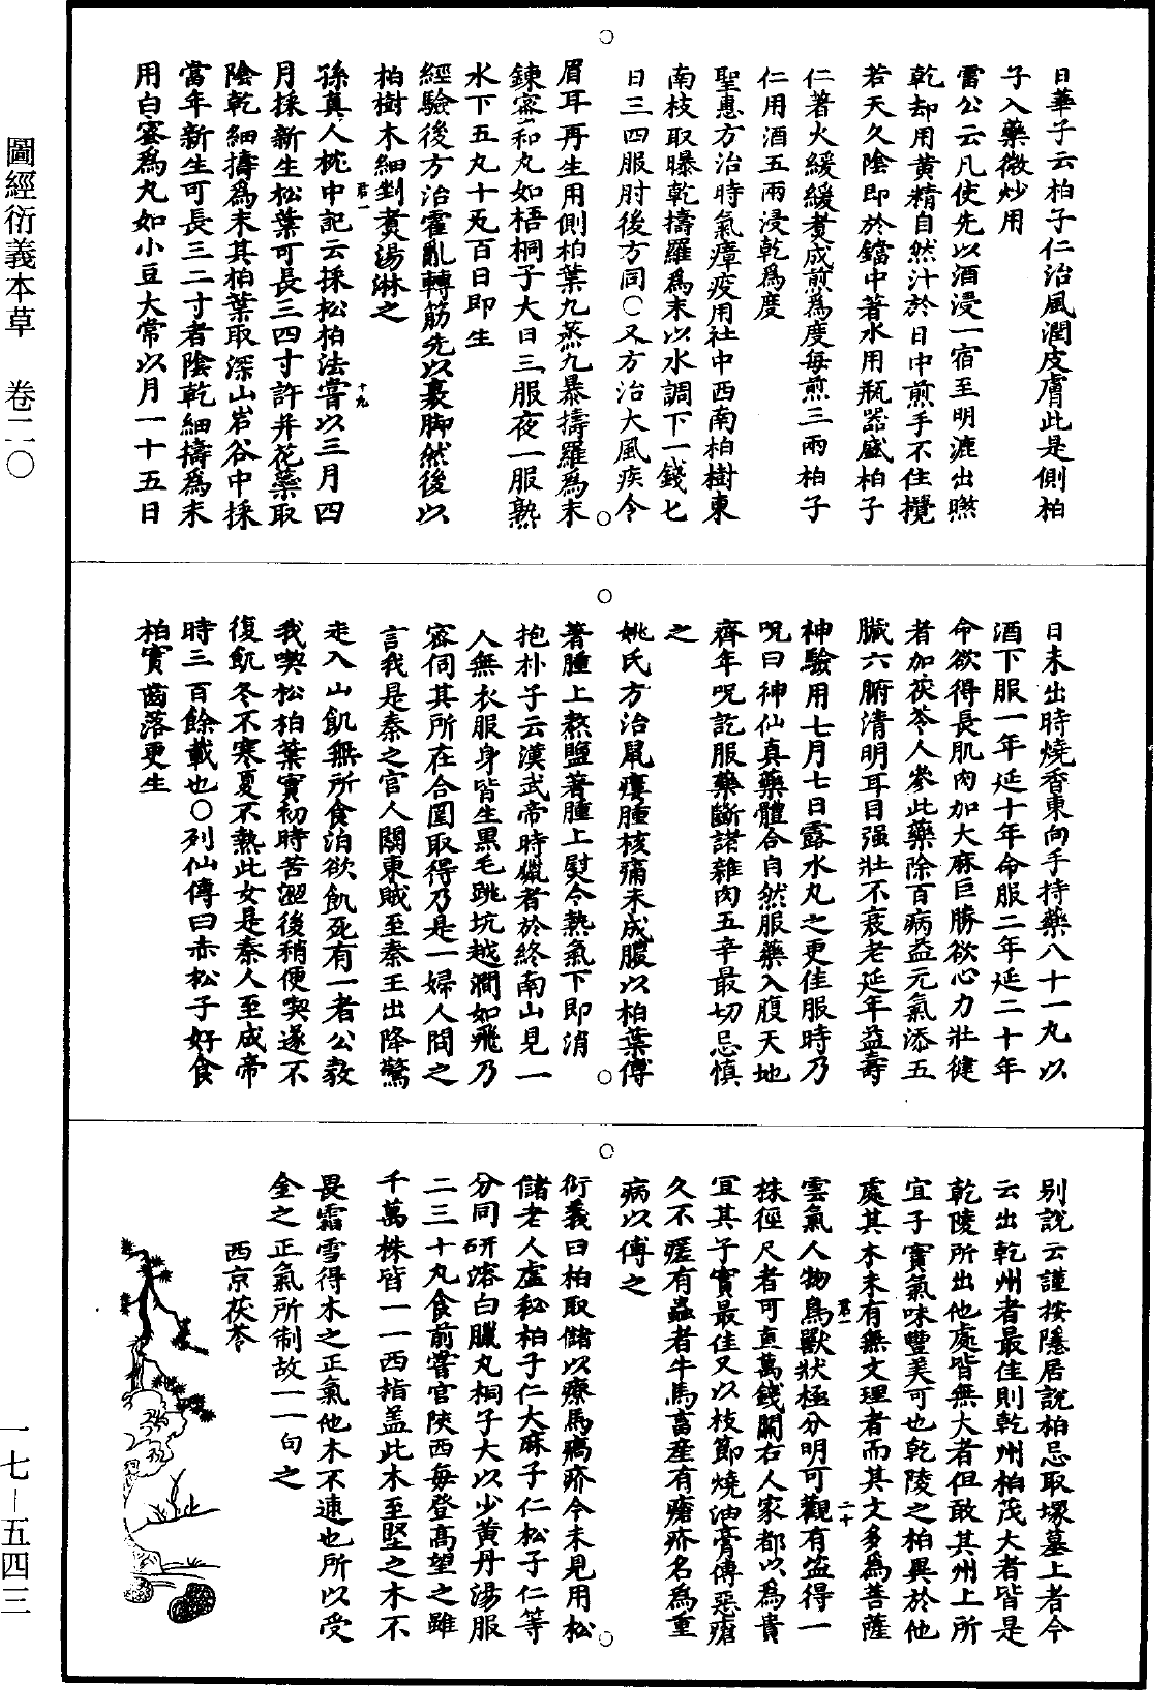 日華子云柏子仁治風潤皮膚此是側柏
子入藥微炒用
雷公云凡使先以酒浸一宿至明漉出㬠
乾却用黄精自然汁於日中煎手不住攪
若天久陰即於鐺中著水用瓶器盛柏子
仁著火緩緩煑成煎為度每煎三兩柏子
仁用酒五兩浸乾為度
聖惠方治時氣瘴疫用社中西南柏樹東
南枝取曝乾擣羅為末以水調下一錢匕
日三四服肘後方同○又方治大風疾令
眉耳再生用側柏葉九蒸九暴擣羅為末
鍊蜜和丸如梧桐子大日三服夜一服熟
水下五丸十丸百日即生
經驗後方治霍亂轉筋先以裹脚然後以
柏樹木細剉煑湯淋之
孫真人枕中記云採松柏法嘗以三月四
月採新生松葉可長三四寸許并花蘂取
陰乾細擣為末其柏葉取深山岩谷中採
當年新生可長三二寸者陰乾細擣為末
用白蜜為丸如小豆大常以月一十五日
日未出時燒香東向手持藥八十一丸以
酒下服一年延十年命服二年延二十年
命欲得長肌肉加大麻巨勝欲心力壯健
者加茯苓人參此藥除百病益元氣添五
臟六腑清明耳目强壯不衰老延年益壽
神驗用七月七日露水丸之更佳服時乃
呪曰神仙真藥體合自然服藥入腹天地
齊年呪訖服藥斷諸雜肉五辛最切忌慎
之
姚氏方治鼠瘻腫核痛未成膿以柏葉傅
著腫上熬鹽著腫上熨令熱氣下即消
抱朴子云漢武帝時獵者於終南山見一
人無衣服身皆生黑毛跳坑越澗如飛乃
密伺其所在合圍取得乃是一婦人問之
言我是秦之官人關東賊至秦王出降驚
走入山飢無所食洎欲飢死有一老公教
我喫松柏葉實初時苦澀後稍便喫遂不
復飢冬不寒夏不熱此女是秦人至成帝
時三百餘載也○列仙傳曰赤松子好食
柏實齒落更生
别說云謹按隱居說柏忌取塚墓上者今
云出乾州者最佳則乾州柏茂大者皆是
乾陵所出他處皆無大者但取其州上所
宜子實氣味豐美可也乾陵之柏異於他
處其木未有無文理者而其文多為菩薩
雲氣人物鳥獸狀極分明可觀有盗得一
株徑尺者可直萬錢關右人家都以為貴
宜其子實最佳又以枝節燒油膏傅惡瘡
久不瘥有蟲者牛馬畜産有瘡疥名為重
病以傅之
衍義曰柏取儲以療馬癘疥今未見用松
儲老人虛秘柏子仁大麻子仁松子仁等
分同研溶白臘丸桐子大以少黄丹湯服
二三十丸食前嘗官陝西每登高望之雖
千萬株皆一一西指盖此木至堅之木不
畏霜雪得木之正氣他木不逮也所以受
金之正氣所制故一一向之
西京茯苓
圖經衍義本草 卷二〇
一七－五四三